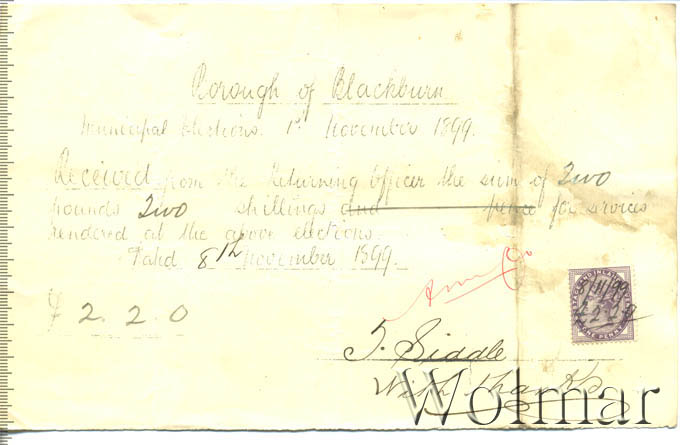 Borough of Blackburn
Municipal Elections. 1st November 1899.
Received from the Returning Officer the sum of Two
pounds Two shillings and pence for services
rendered at the above elections.
Dated 8th November 1899.
£ 2. 2. 0
J. Siddle
With thanks
Wolmar